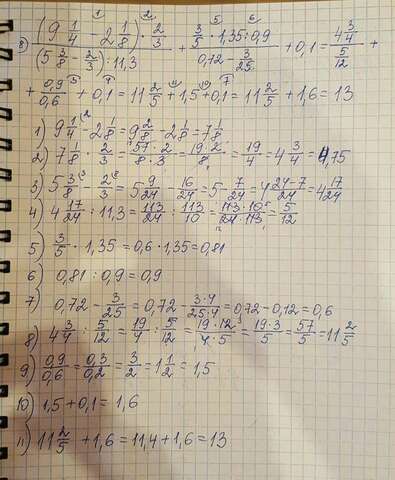 1 2 5 6
8) (9 1/4 - 2 1/8) · 2/3 / (5 3/8 - 2/3) : 11,3 + 3/5 · 1,35 : 0,9 / 0,72 - 3/25 + 0,1 = 4 3/4 / 5/12 +
+ 0,9/0,6 + 0,1 = 11 2/5 + 1,5 + 0,1 = 11 2/5 + 1,6 = 13
1) 9 1/4 - 2 1/8 = 9 2/8 - 2 1/8 = 7 1/8
2) 7 1/8 · 2/3 = 57 · 2/8 · 3 = 19 · 2/8 = 19/4 = 4 3/4 = 4,75
3) 5 3/8 - 2/3 = 5 9/24 - 16/24 = 5 - 7/24 = 4 24-7/24 = 4 17/24
4) 4 17/24 : 11,3 = 113/24 : 113/10 = 113 · 10/24 · 113 = 5/12
5) 3/5 · 1,35 = 0,6 · 1,35 = 0,81
6) 0,81 : 0,9 = 0,9
7) 0,72 - 3/25 = 0,72 - 3·4/25·4 = 0,72 - 0,12 = 0,6
8) 4 3/4 : 5/12 = 19/4 : 5/12 = 19 · 12/4 · 5 = 19 · 3/5 = 57/5 = 11 2/5
9) 0,9/0,6 = 0,3/0,2 = 3/2 = 1 1/2 = 1,5
10) 1,5 + 0,1 = 1,6
11) 11 2/5 + 1,6 = 11,4 + 1,6 = 13